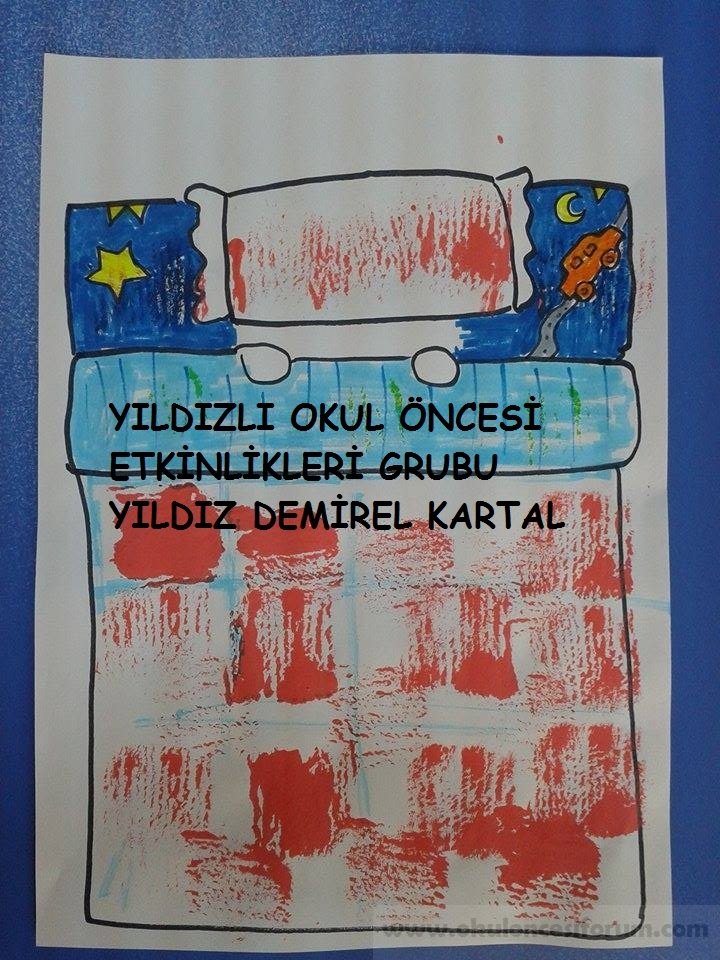 YILDIZLI OKUL ÖNCESİ
ETKİNLİKLERİ GRUBU
YILDIZ DEMİREL KARTAL
www.okuloncesiforum.com